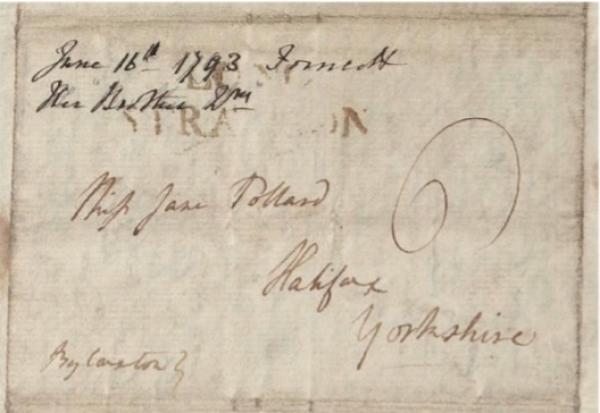 June 16th 1793 Forncett
Her Brother Wm
STRA ON
Miss Jane Pollard
Halifax
Yorkshire